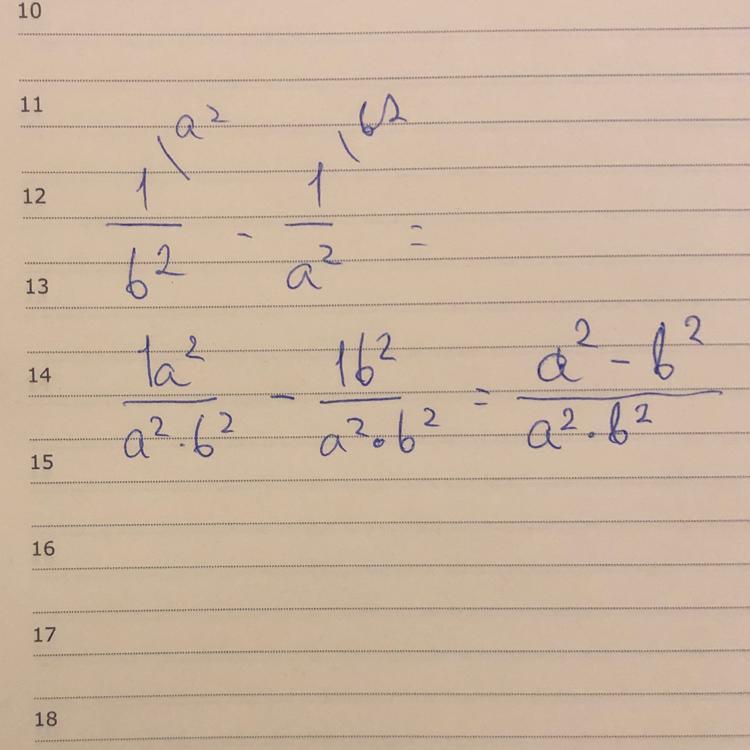 10
11
a² b²
12
1/b² - 1/a² =
13
14
1a²/a²·b² - 1b²/a²·b² = a² - b²/a²·b²
15
16
17
18